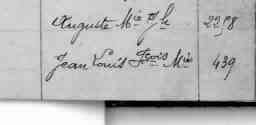 Auguste Mie Jh 2258
Jean Louis Fcois Mie 439